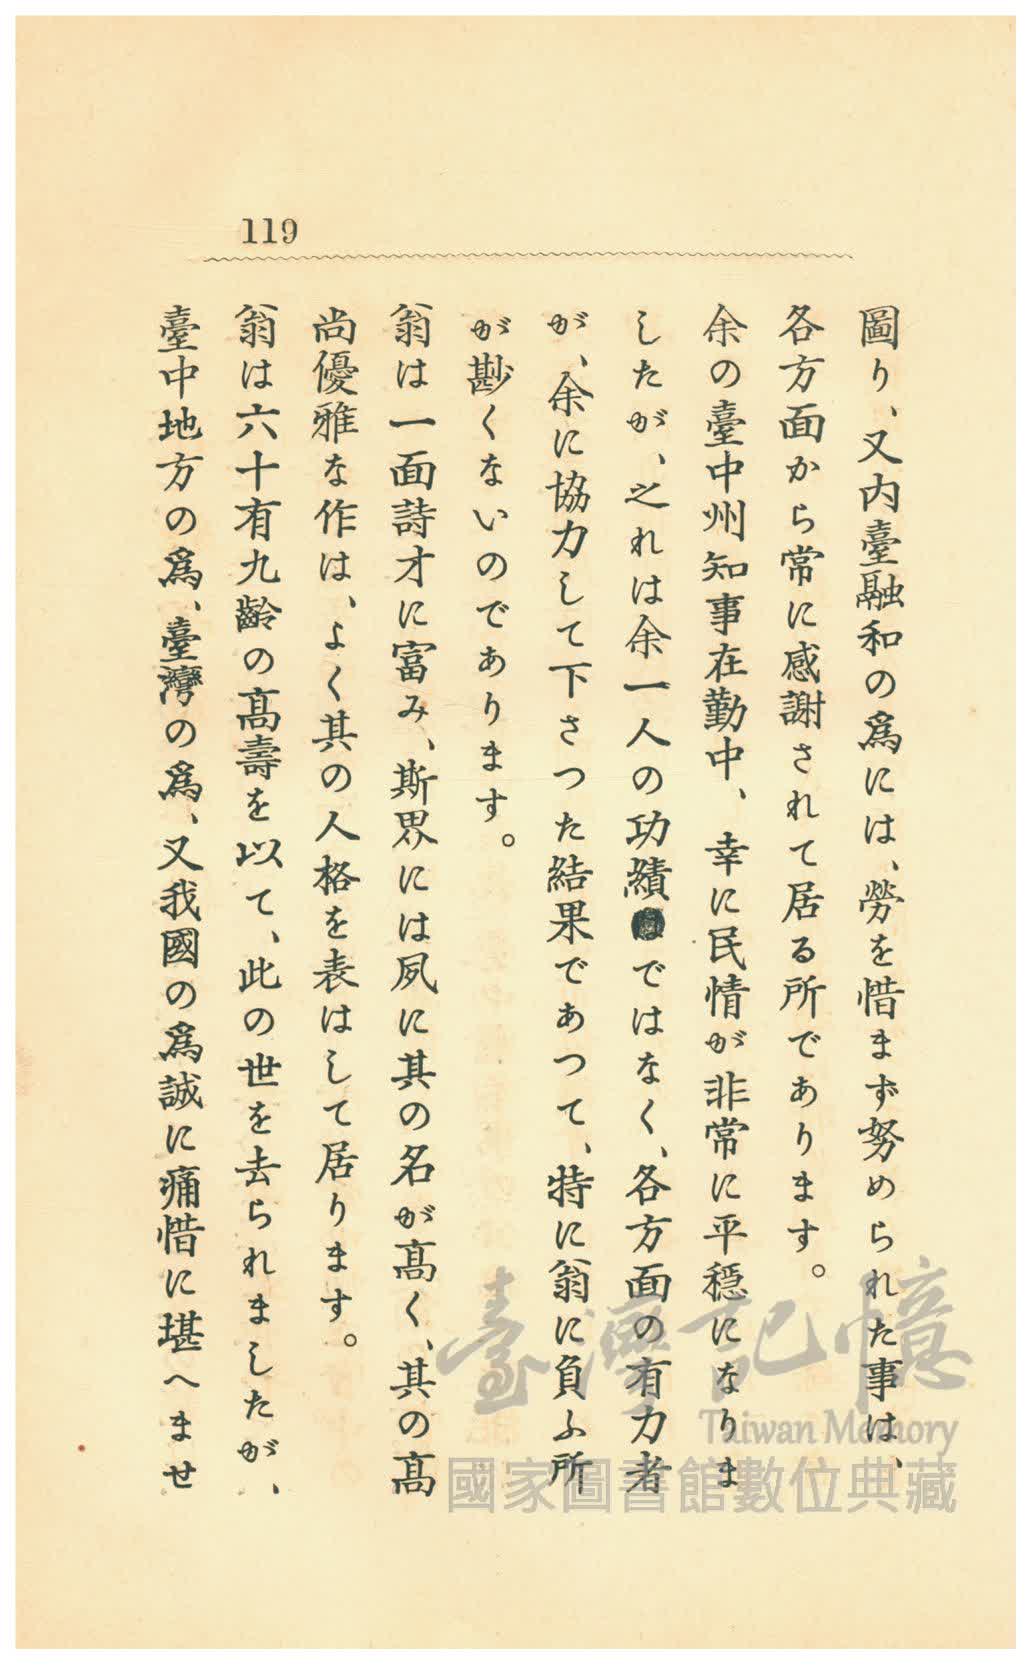 119
圖り、又内臺融和の爲には、勞を惜まず努められた事は、
各方面から常に感謝されて居る所であります。
余の臺中州知事在勤中、幸に民情が非常に平穩になりま
したが、之れは余一人の功績ではなく、各方面の有力者
が、余に協力して下さつた結果であつて、特に翁に負ふ所
が尠くないのであります。
翁は一面詩才に富み、斯界には夙に其の名が髙く、其の髙
尚優雅な作は、よく其の人格を表はして居ります。
翁は六十有九齡の髙壽を以て、此の世を去られましたが、
臺中地方の爲、臺灣の爲、又我國の爲誠に痛惜に堪へませ
臺灣記憶
Taiwan Memory
國家圖書館數位典藏